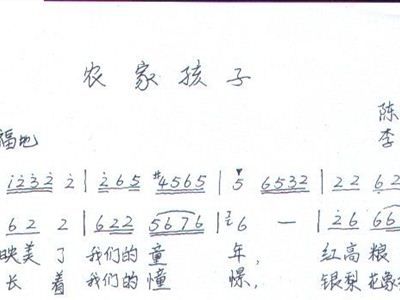 农家孩子
陈
福地 李
1232 2 | 265 #4565 | 5 6532 | 22 62
62 2 | 622 5676 | 26 — | 26 66
映美了 我们的童 年, 红高粮
长 着 我们的憧 憬, 银梨花象